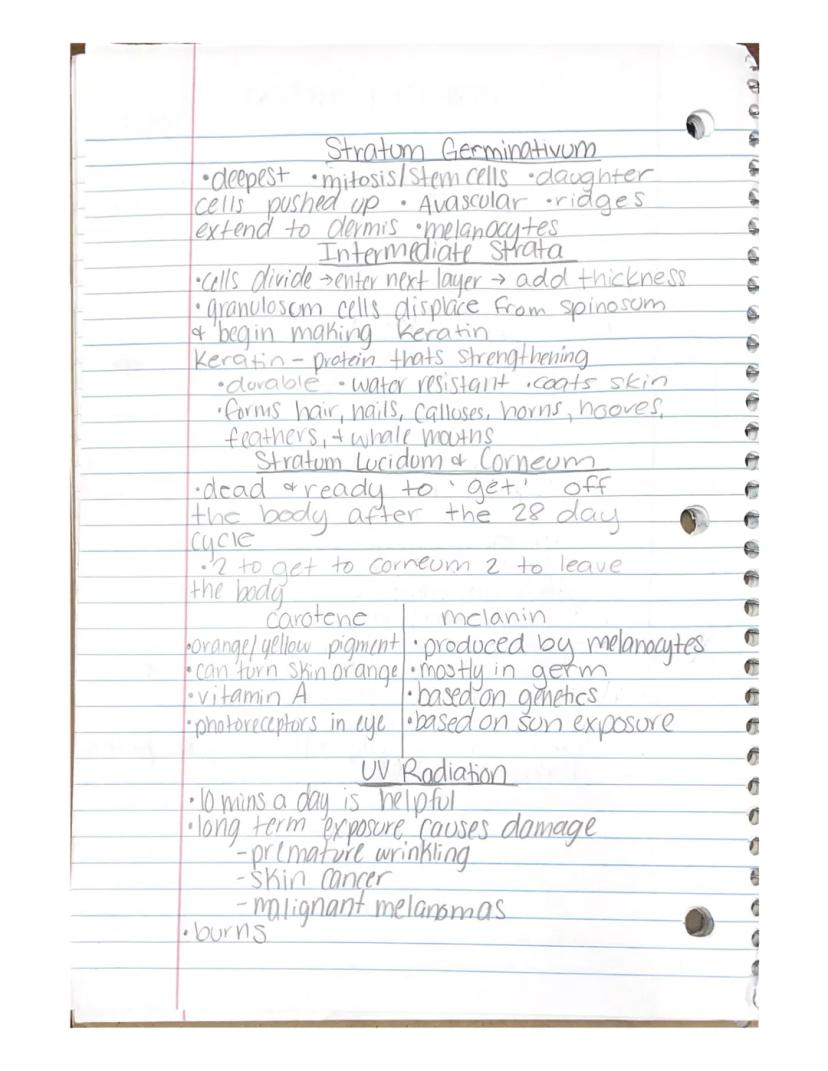 Stratum Germinativum
•deepest •mitosis/stem cells •daughter
cells pushed up • Avascular •ridges
extend to dermis •melanocytes
Intermediate Strata
•cells divide → enter next layer → add thickness
•granulosum cells displace from spinosum
& begin making keratin
Keratin - protein thats strengthening
•durable •water resistant •coats skin
•forms hair, nails, calluses, horns, hooves,
feathers, & whale mouths
Stratum Lucidum & Corneum
•dead & ready to 'get' off
the body after the 28 day
cycle
•2 to get to corneum 2 to leave
the body
carotene | melanin
•orange/yellow pigment | •produced by melanocytes
•can turn skin orange | •mostly in germ
•vitamin A | •based on genetics
•photoreceptors in eye | •based on sun exposure
UV Radiation
•10 mins a day is helpful
•long term exposure causes damage
-premature wrinkling
-skin cancer
-malignant melanomas
•burns